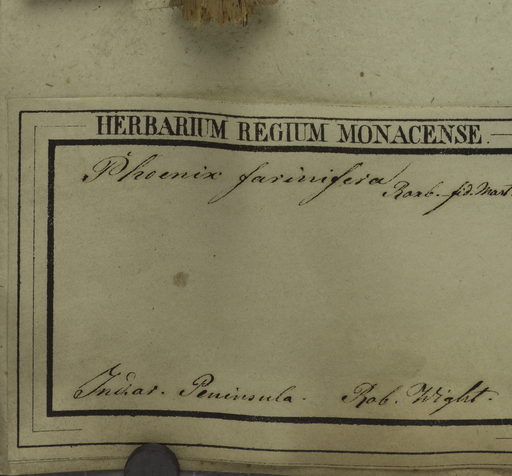 HERBARIUM REGIUM MONACENSE.
Phoenix farinifera Roxb. fid. Mart.
Indiae. Peninsula. Rob. Wight.